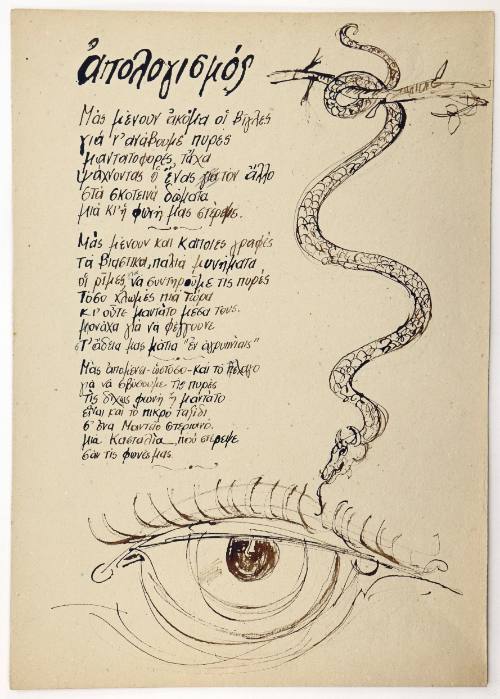 ἀπολογισμός
Μᾶς μένουν ἀκόμα οἱ βίγλες
γιὰ ν' ἀνάβουμε πυρές
μαντατοφόρες, τάχα
ψάχνοντας ὁ ἕνας γιὰ τὸν ἄλλο
στὰ σκοτεινὰ δώματα
μιὰ κι' ἡ φωνή μας στέρεψε.
Μᾶς μένουν καὶ κάποιες γραφές
τὰ βιαστικά, παλιὰ μυνήματα
οἱ ρίμες, νὰ συντηροῦμε τὶς πυρές
Τόσο χλωμές πιὰ τώρα
κι' οὔτε μαντάτο μέσα τους.
μονάχα γιὰ νὰ φέγγουνε
τ' ἄδεια μας μάτια "ἐν ἀγρυπνίαις"
Μᾶς ἀπομένει -ὡστόσο- καὶ τὸ πέλαγο
γιὰ νὰ σβύσουμε τὶς πυρές
τὶς δίχως φωνὴ ἢ μαντάτο
εἶναι καὶ τὸ πικρὸ ταξίδι
σ' ἕνα Μαντεῖο στεριανό.
μιὰ Κασταλία, ποὺ στέρεψε
σὰν τὶς φωνές μας.